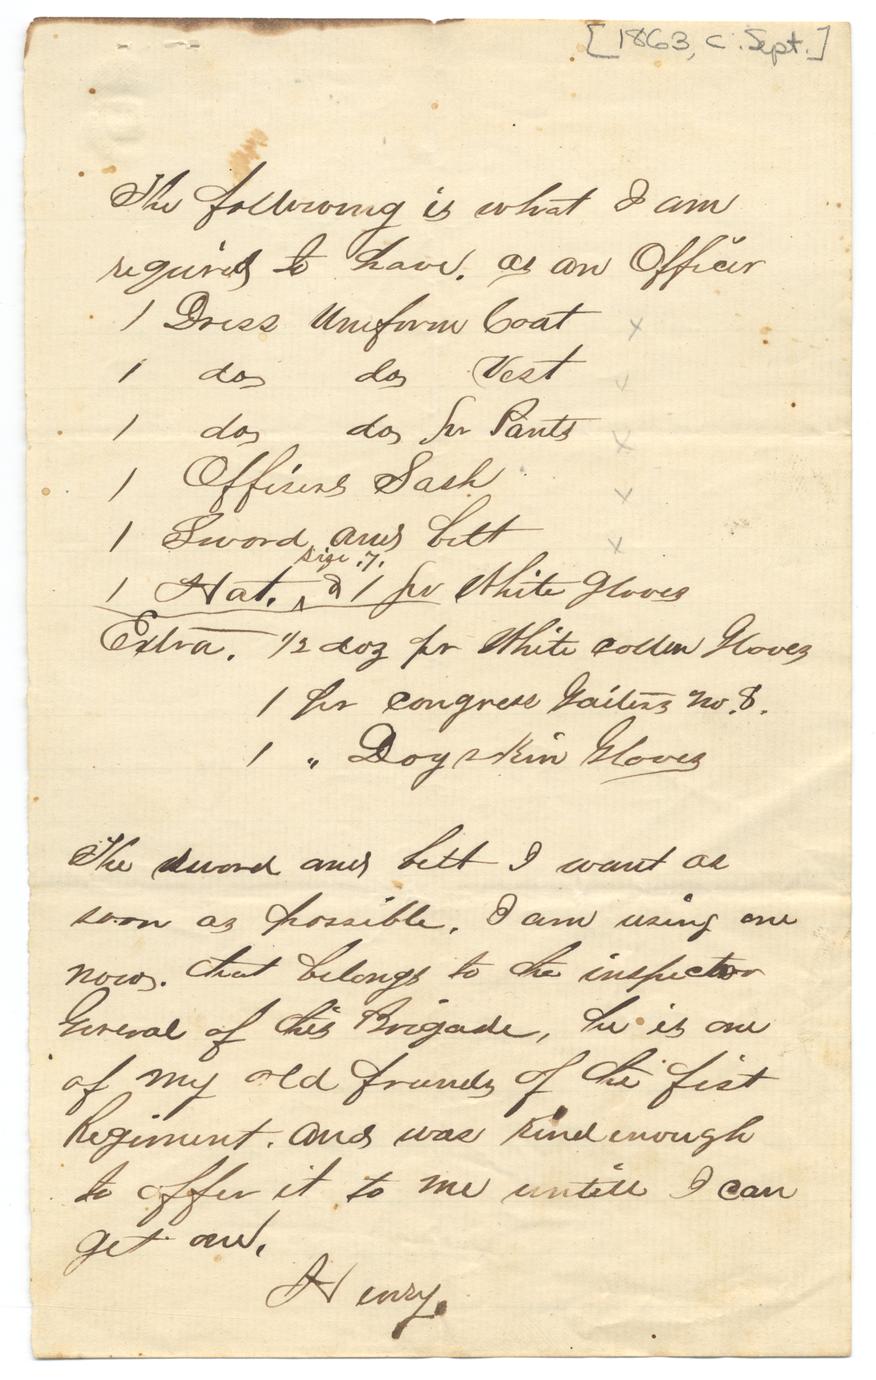 [1863, c. Sept.]
The following is what I am
required to have. as an Officer
1 Dress Uniform Coat x
1 do do Vest x
1 do do pr Pants x
1 Officers Sash x
1 Sword and belt x
size .7.
1 Hat. ^ & 1 pr White Gloves
Extra. 1/2 doz pr White cotten Gloves
1 pr congress Gaiters no. 8.
1 " Dog skin Gloves
The sword and belt I want as
soon as possible. I am using one
now. that belongs to the inspector
General of this Brigade, he is one
of my old friends of the fist
Regiment. and was kind enough
to offer it to me untill I can
get one.
Henry.